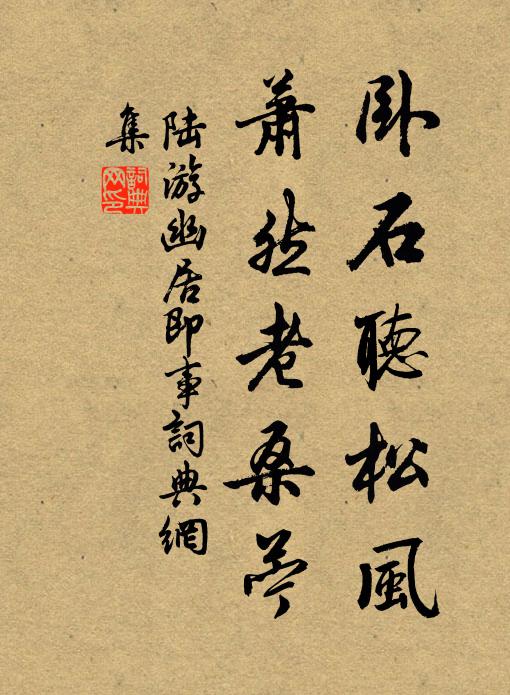 卧石聽松風
蕭然老桑苧
陸游幽居即事詞典網
集
詞典網印